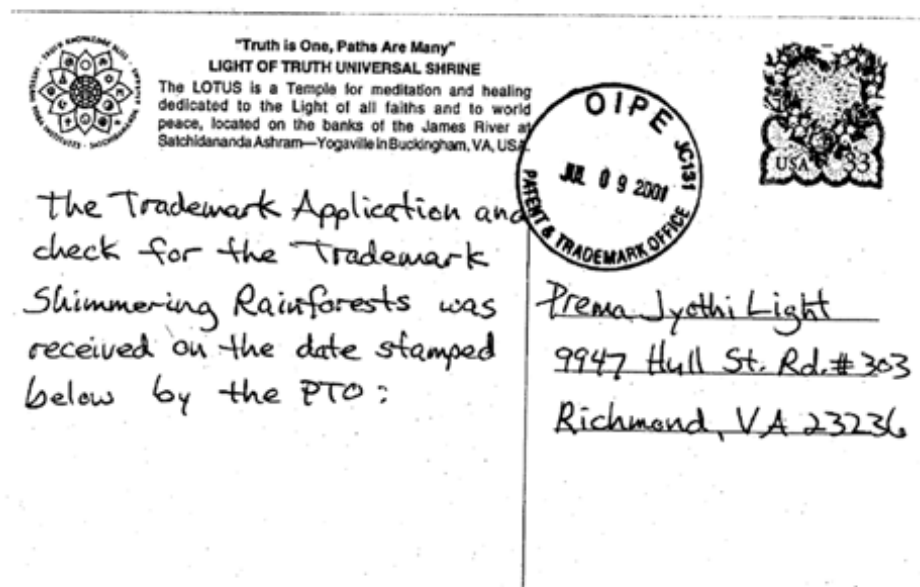 "Truth is One, Paths Are Many"
LIGHT OF TRUTH UNIVERSAL SHRINE
The LOTUS is a Temple for meditation and healing
dedicated to the Light of all faiths and to world
peace, located on the banks of the James River at
Satchidananda Ashram—Yogaville in Buckingham, VA, USA.
OIPE JC131
JUL 09 2001
PATENT & TRADEMARK OFFICE
USA 33
The Trademark Application and
check for the Trademark
Shimmering Rainforests was
received on the date stamped
below by the PTO:
Prema Jyothi Light
9947 Hull St. Rd. # 303
Richmond, VA 23236